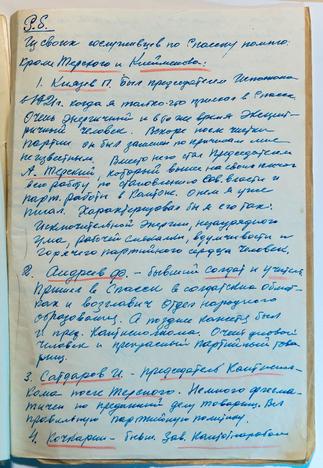 P.S.
Из своих сослуживцев по Спасску помню
кроме Терского и Клейменова:
1. Князев П. Был председателем Исполкома
в 1921 г. когда я только что приехал в Спасск.
Очень энергичный и в то же время эксцент-
ричный человек. Вскоре после чистки
партии он был заменен по причинам мне
неизвестным. Вместо него стал Председателем
А. Терский, который вынес на своих плечах
всю работу по становлению Сов. власти и
парт. работы в Кантоне. О нем я уже
писал. Характеризовал бы я его так:
Исключительной энергии, незаурядного
ума, рабочей смекалки, вдумчивости и
горячего партийного сердца человек.
2. Андреев Ф. - бывший солдат и учитель
Пришел в Спасск в солдатских обмот-
ках и возглавил Отдел народного
образования. А позднее кажется был
и пред. Кантисполкома. Очень деловой
человек и прекрасный партийный това-
рищ.
3. Сатдаров И. - председатель Кантиспол-
кома после Терского. Немного флегма-
тичен но преданный делу товарищ. Вел
правильную партийную политику.
4. Кочкарин - бывш. Зав. Кантотнаробом